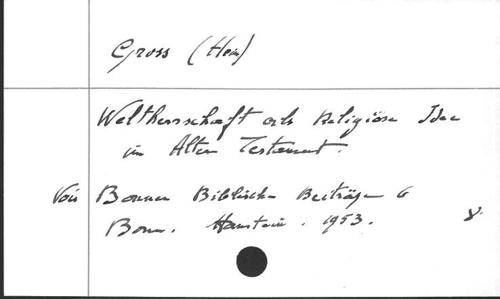 Gross (Hein)
Weltherrschaft als Religiöse Idee
im Alten Testament.
Voir Bonner Biblische Beiträge 6
Bonn. Hanstein. 1953. 8°